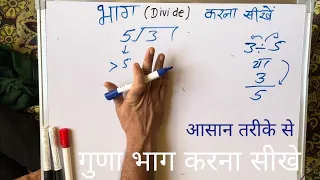 भाग (Divide) करना सीखें
5/3
> 5
3 ÷ 5
या
3
5
आसान तरीके से
गुणा भाग करना सीखे